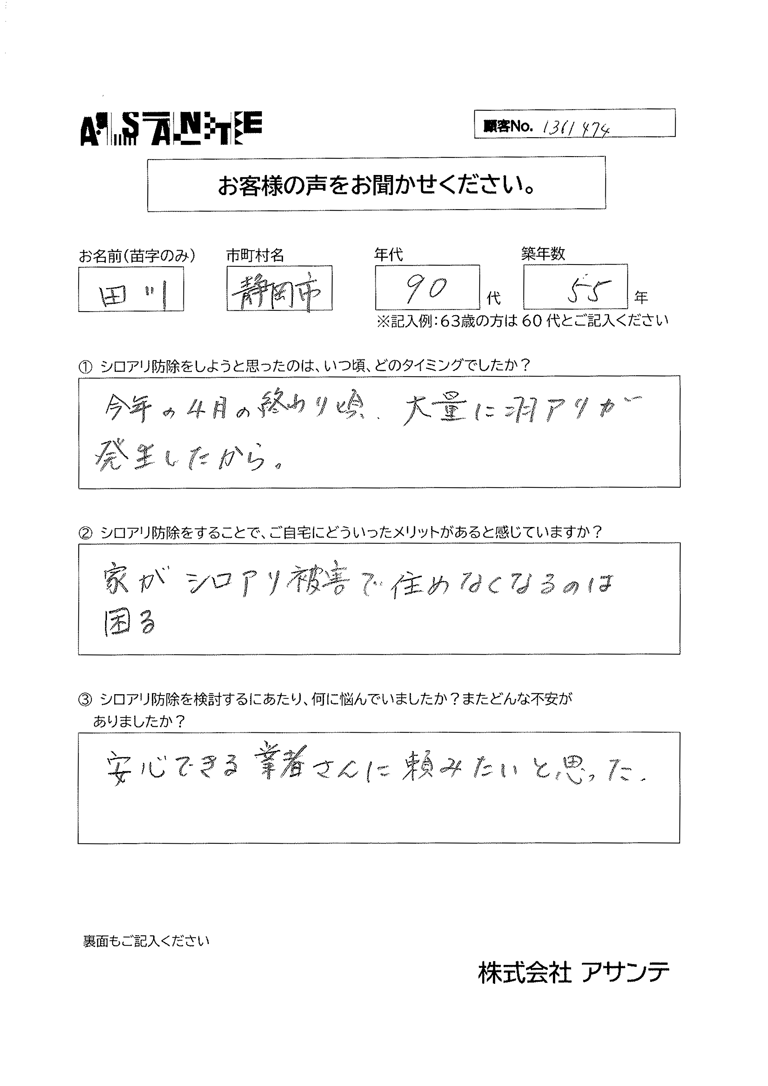 ASANTE
顧客No. 1361474
お客様の声をお聞かせください。
お名前(苗字のみ) 市町村名 年代 築年数
田川 静岡市 90 代 55 年
※記入例：63歳の方は60代とご記入ください
① シロアリ防除をしようと思ったのは、いつ頃、どのタイミングでしたか？
今年の4月の終わり頃、大量に羽アリが
発生したから。
② シロアリ防除をすることで、ご自宅にどういったメリットがあると感じていますか？
家がシロアリ被害で住めなくなるのは
困る
③ シロアリ防除を検討するにあたり、何に悩んでいましたか？またどんな不安が
ありましたか？
安心できる業者さんに頼みたいと思った.
裏面もご記入ください
株式会社 アサンテ